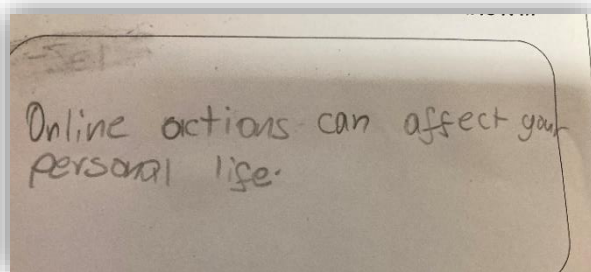 Online actions can affect your
personal life.